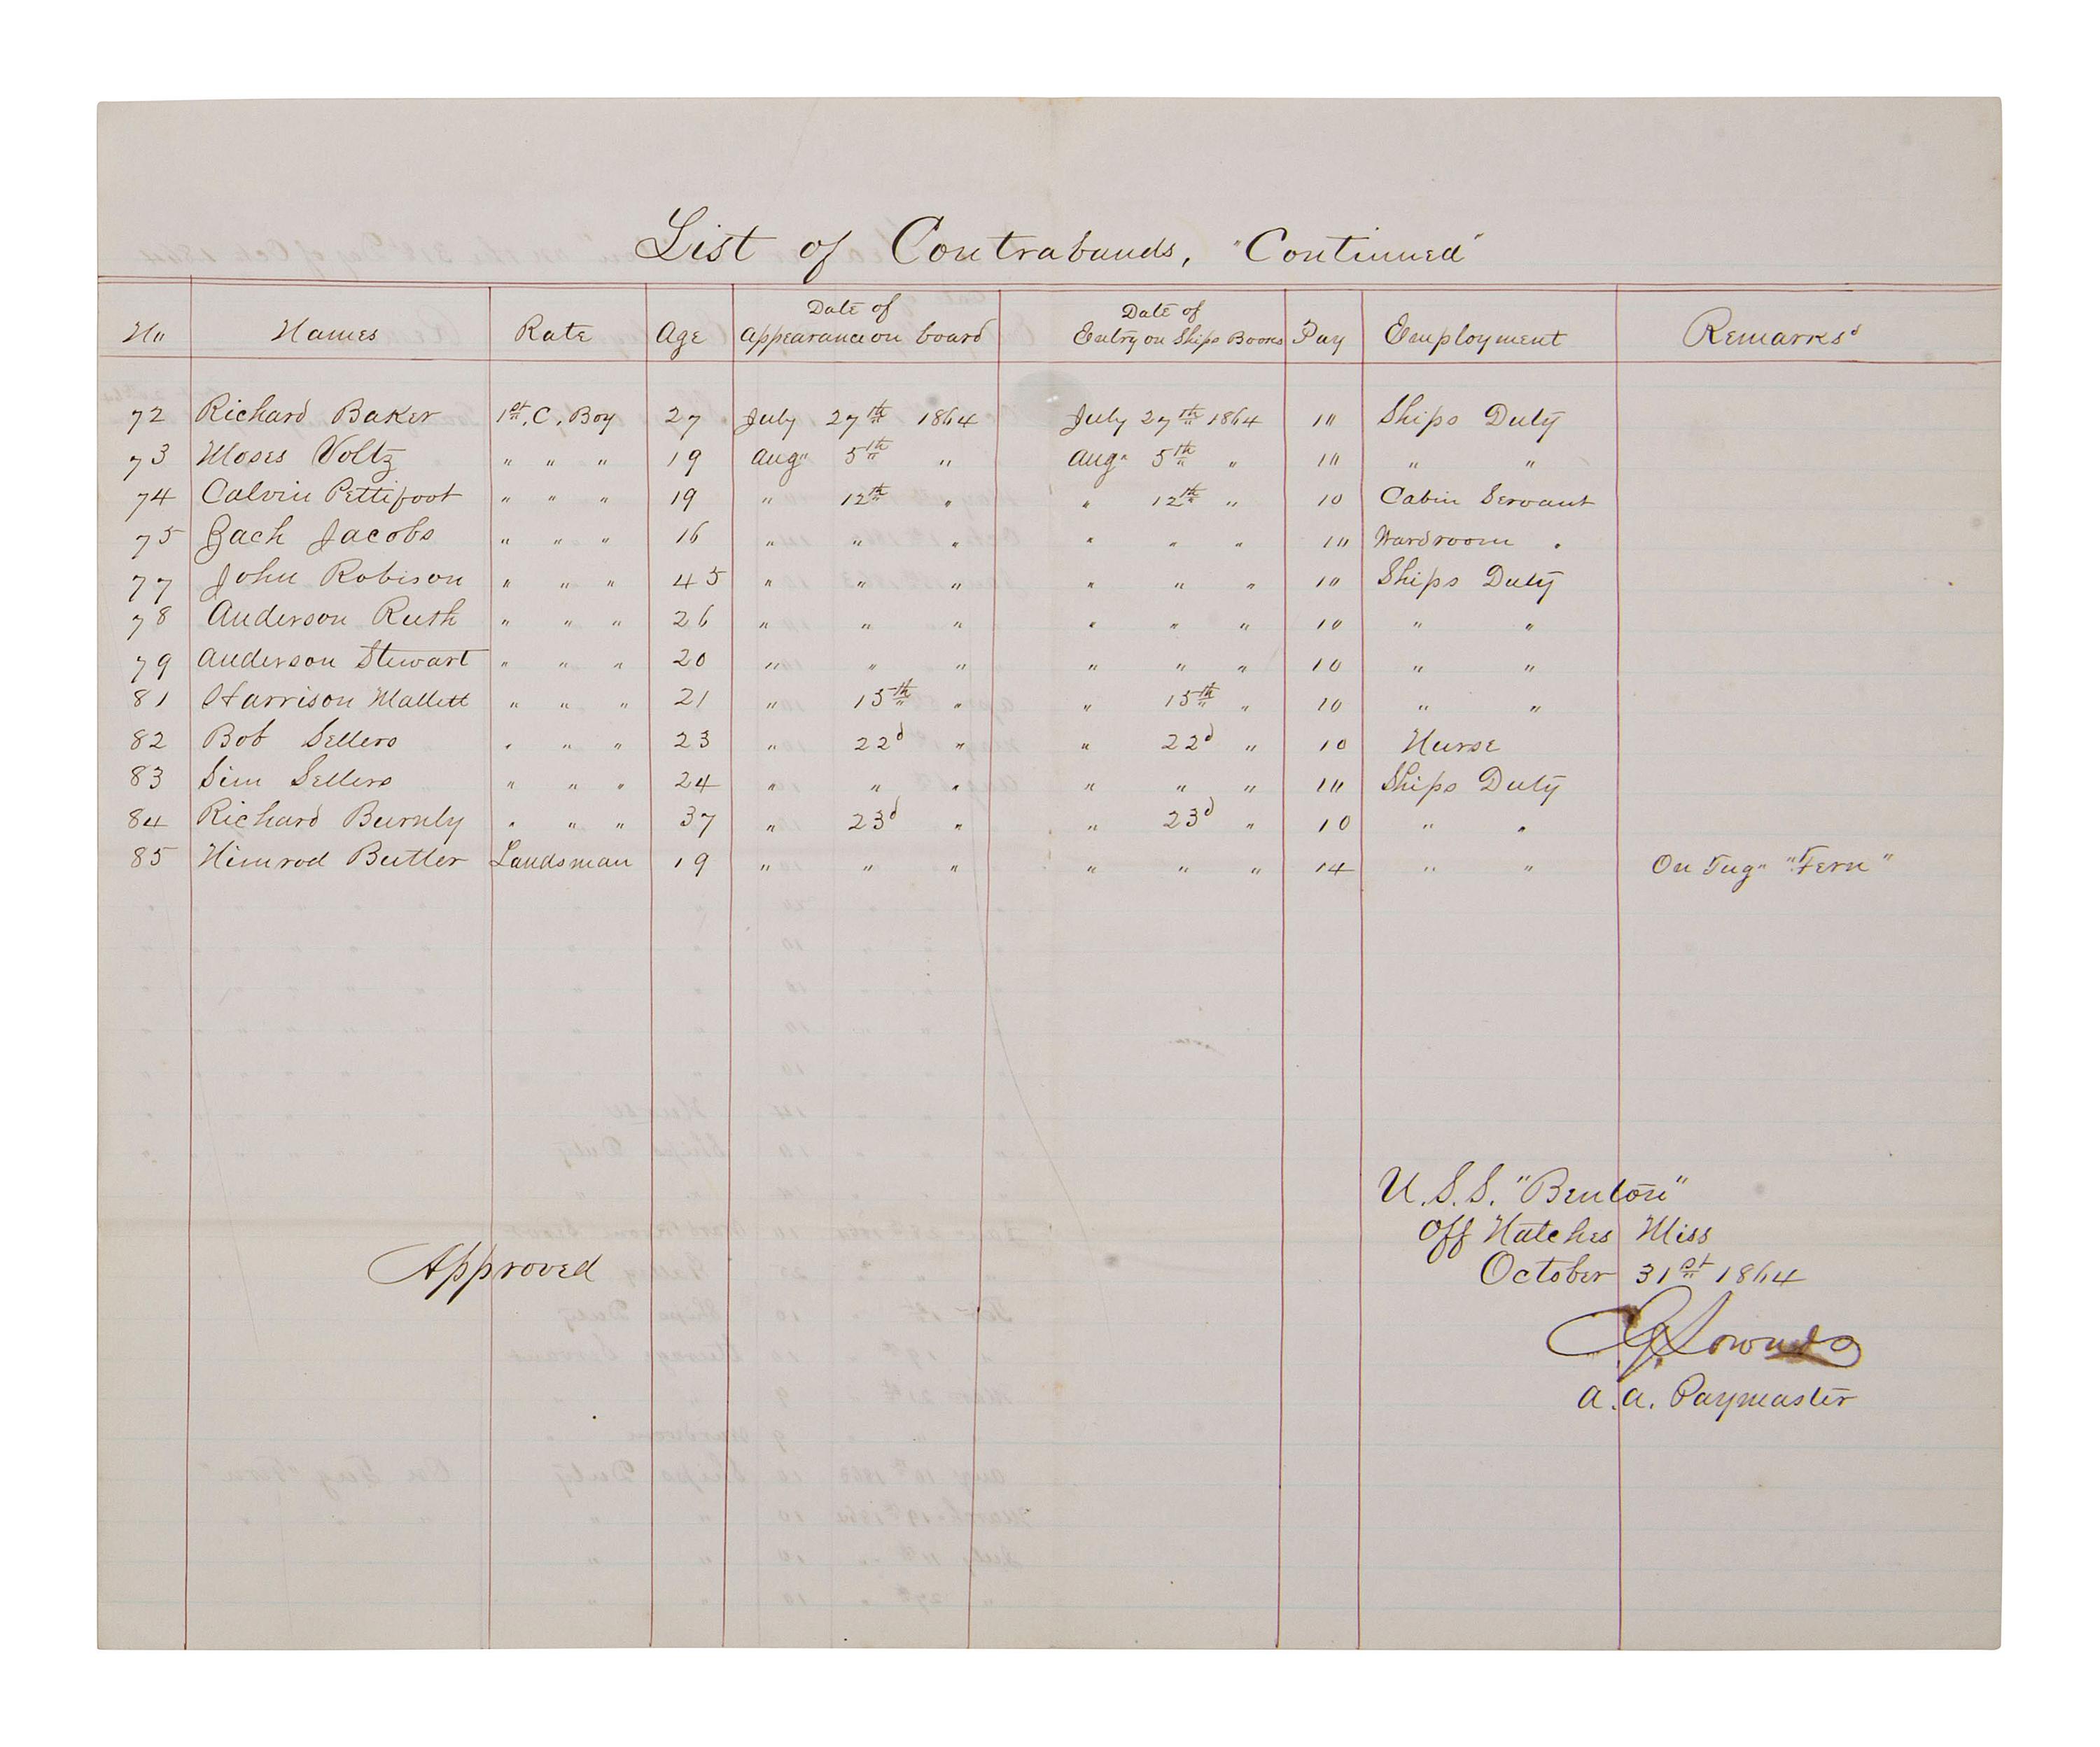 List of Contrabands, "Continued"
No Names Rate Age Date of appearance on board Date of Entry on Ships Books Pay Employment Remarks
72 Richard Baker 1st. C. Boy 27 July 27th 1864 July 27th 1864 10 Ships Duty
73 Moses Voltz " " " 19 Aug" 5th " Aug" 5th " 10 " "
74 Calvin Pettifoot " " " 19 " 12th " " 12th " 10 Cabin Servant
75 Zach Jacobs " " " 16 " " " " " " 10 Wardroom "
77 John Robison " " " 45 " " " " " " 10 Ships Duty
78 Anderson Ruth " " " 26 " " " " " " 10 " "
79 Anderson Stewart " " " 20 " " " " " " 10 " "
81 Harrison Mallett " " " 21 " 15th " " 15th " 10 " "
82 Bob Sellers " " " 23 " 22d " " 22d " 10 Nurse
83 Sim Sellers " " " 24 " " " " " " 10 Ships Duty
84 Richard Burnly " " " 37 " 23d " " 23d " 10 " "
85 Nimrod Butler Landsman 19 " " " " " " 14 " " On Tug" "Fern"
U.S.S. "Benton"
Off Natches Miss
Approved
October 31st 1864
Lownds
A.A. Paymaster